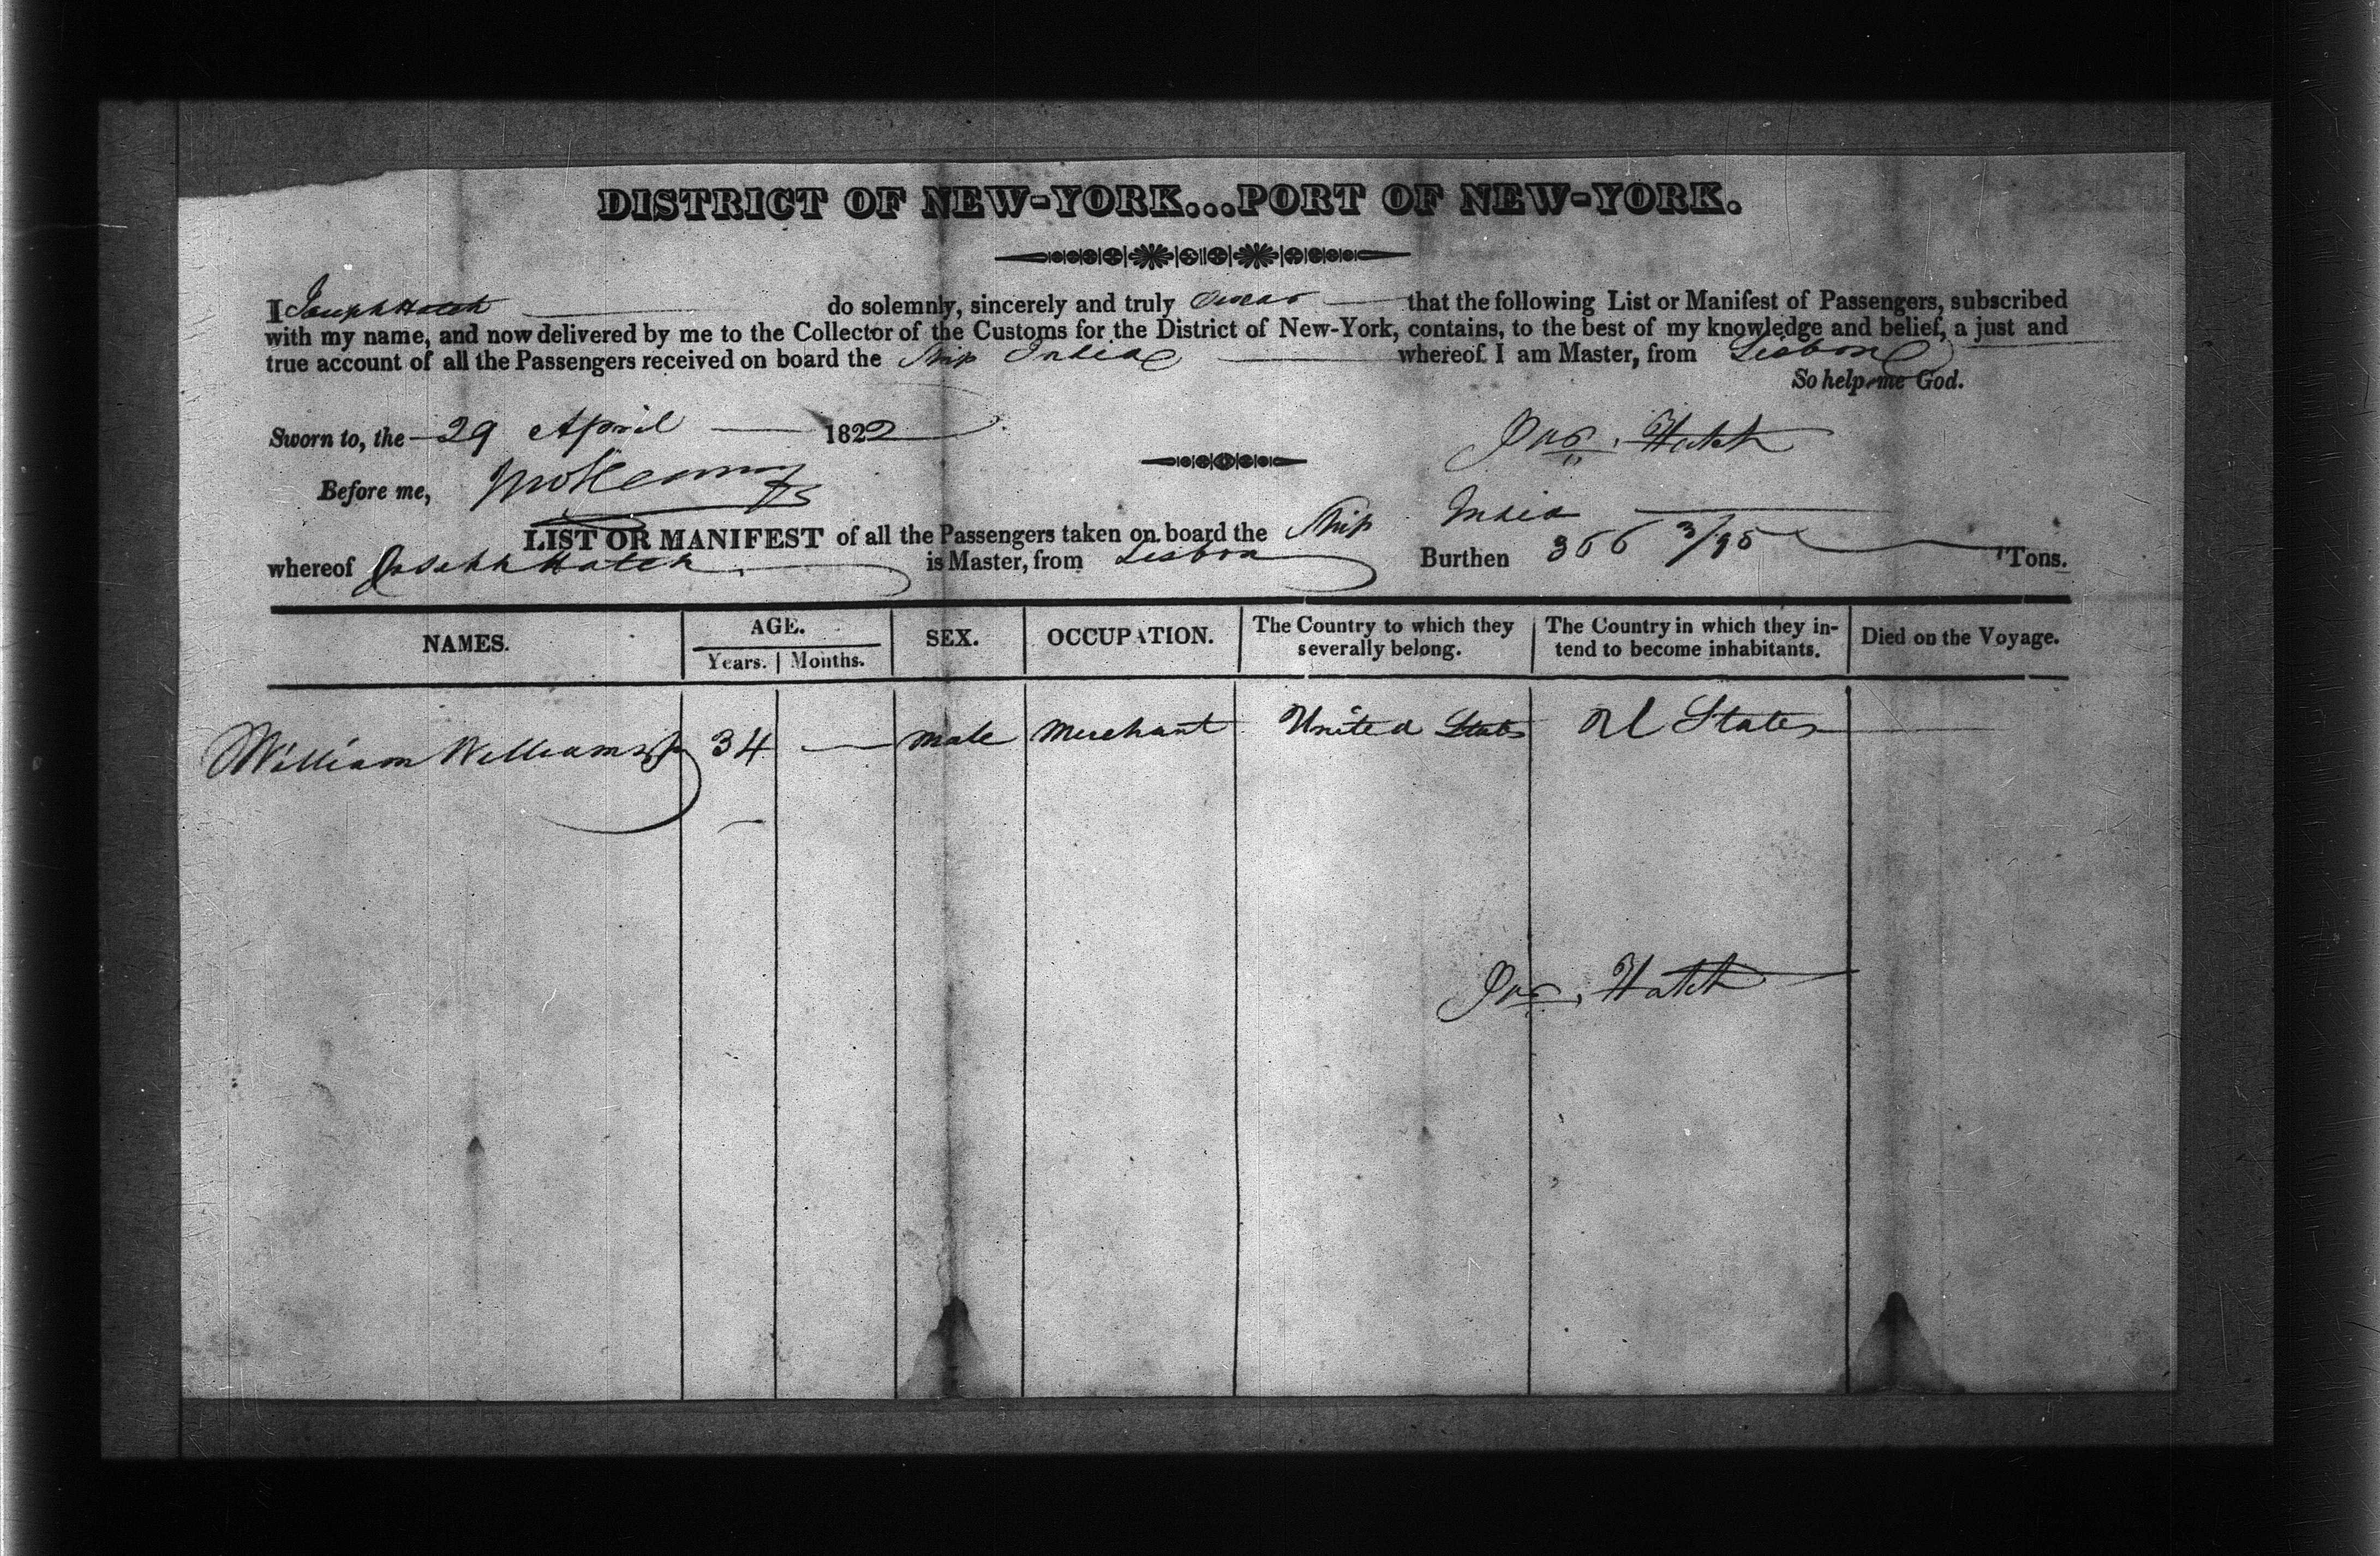 DISTRICT OF NEW-YORK...PORT OF NEW-YORK.
I Joseph Hatch do solemnly, sincerely and truly swear that the following List or Manifest of Passengers, subscribed
with my name, and now delivered by me to the Collector of the Customs for the District of New-York, contains, to the best of my knowledge and belief, a just and
true account of all the Passengers received on board the Ship India whereof I am Master, from Lisbon
So help me God.
Sworn to, the 29 April 1822
Jos. Hatch
Before me,
LIST OR MANIFEST of all the Passengers taken on board the Ship India
whereof Joseph Hatch is Master, from Lisbon Burthen 366 3/95 Tons.
NAMES. AGE. SEX. OCCUPATION. The Country to which they severally belong. The Country in which they intend to become inhabitants. Died on the Voyage.
Years. Months.
William Williams 34 male Merchant United States U States
Jos. Hatch